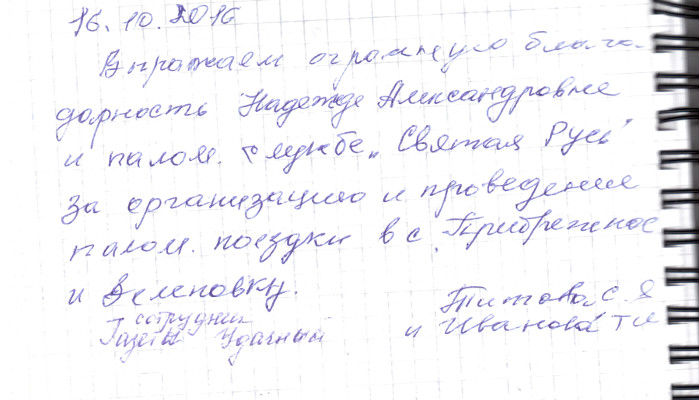 16.10.2016
Выражаем огромную блага-
дарность Надежде Александровне
и палом. службе „Святая Русь"
за организацию и проведение
палом. поездки в с. Прибрежное
и Зеленовку.
сотрудник
Газеты Удачный
Титова С Я
и Иванова Т И